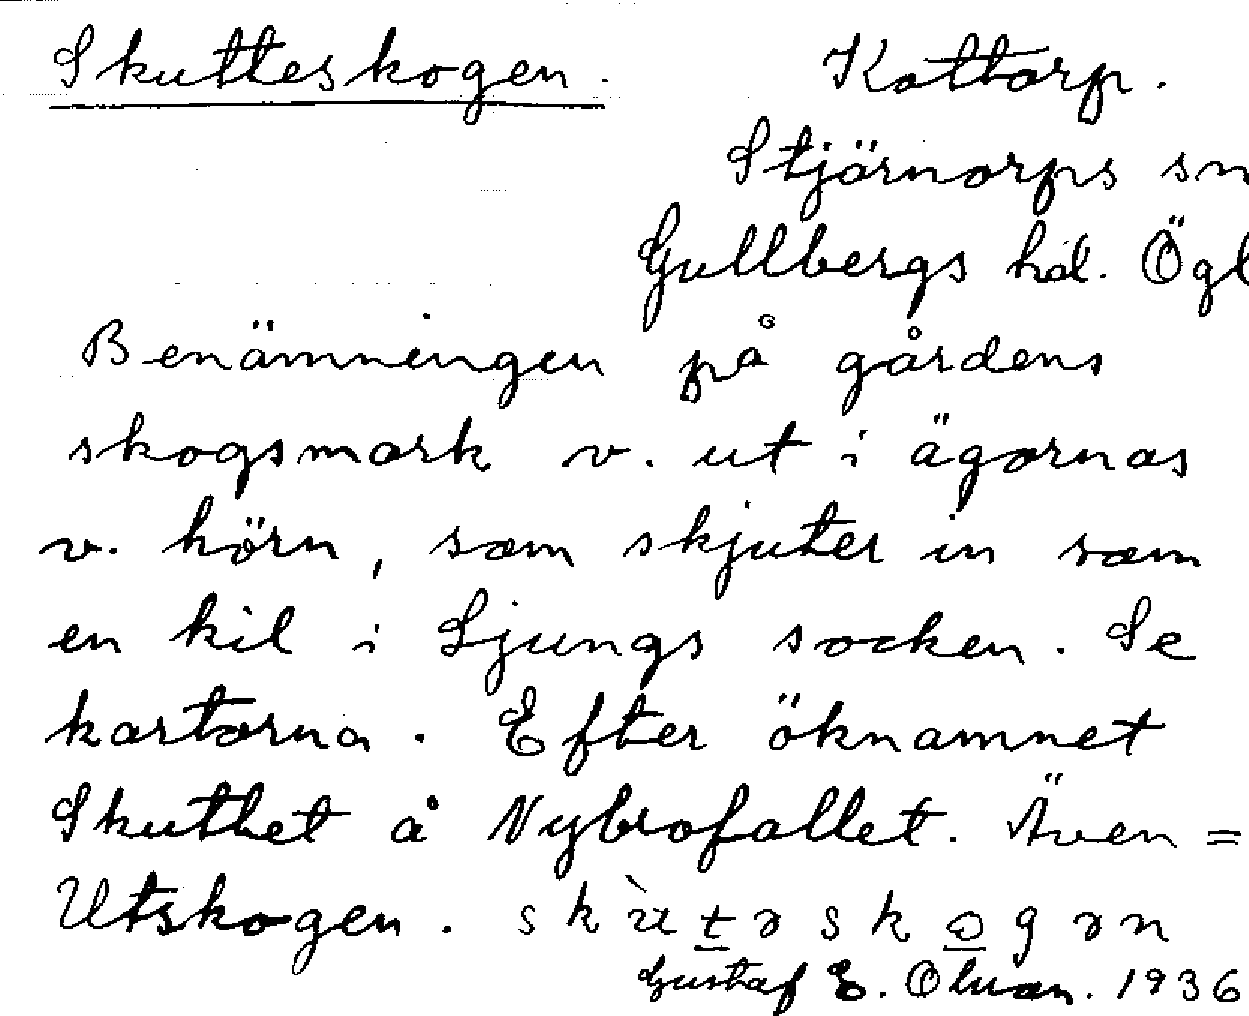 Skutteskogen. Kattorp.
Stjärnorps sn
Gullbergs hd. Ögl
Benämningen på gårdens
skogsmark v. ut i ägornas
v. hörn, som skjuter in som
en kil i Ljungs socken. Se
kartorna. Efter öknamnet
Skuttet å Nybrofallet. Även =
Utskogen.
Gustaf E. Olson. 1936